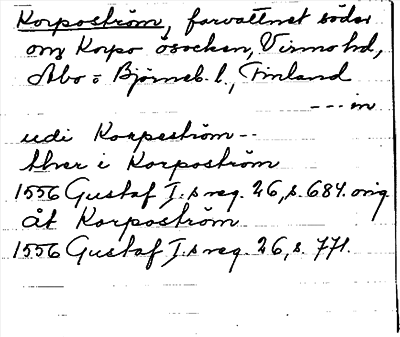 Korpoström, farvattnet söder
om Korpo ösocken, Virmo hd,
Åbo o Björneb. l., Finland
--- in
udi Korpeström --
thver i Korpoström
1556 Gustaf I.s reg. 26, s. 684. orig.
åt Korpoström
1556 Gustaf I.s reg. 26, s. 771.